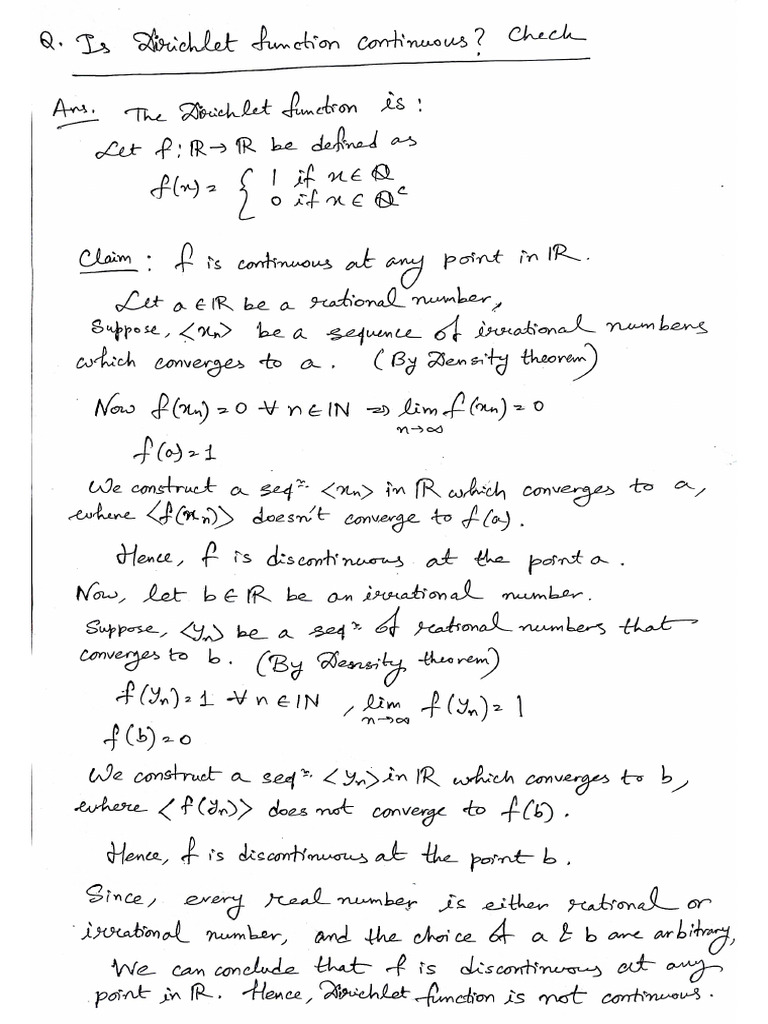 Q. Is Dirichlet function continuous? Check
Ans. The Dirichlet function is :
Let f : ℝ → ℝ be defined as
f(x) = { 1 if x ∈ ℚ
0 if x ∈ ℚᶜ
Claim : f is continuous at any point in ℝ.
Let a ∈ ℝ be a rational number,
Suppose, <xₙ> be a sequence of irrational numbers
which converges to a. (By Density theorem)
Now f(xₙ) = 0 ∀ n ∈ ℕ ⇒ lim f(xₙ) = 0
n→∞
f(a) = 1
We construct a seqⁿ. <xₙ> in ℝ which converges to a,
where <f(xₙ)> doesn't converge to f(a).
Hence, f is discontinuous at the point a.
Now, let b ∈ ℝ be an irrational number.
Suppose, <yₙ> be a seqⁿ of rational numbers that
converges to b. (By Density theorem)
f(yₙ) = 1 ∀ n ∈ ℕ , lim f(yₙ) = 1
n→∞
f(b) = 0
We construct a seqⁿ. <yₙ> in ℝ which converges to b,
where <f(yₙ)> does not converge to f(b).
Hence, f is discontinuous at the point b.
Since, every real number is either rational or
irrational number, and the choice of a & b are arbitrary,
We can conclude that f is discontinuous at any
point in ℝ. Hence, Dirichlet function is not continuous.